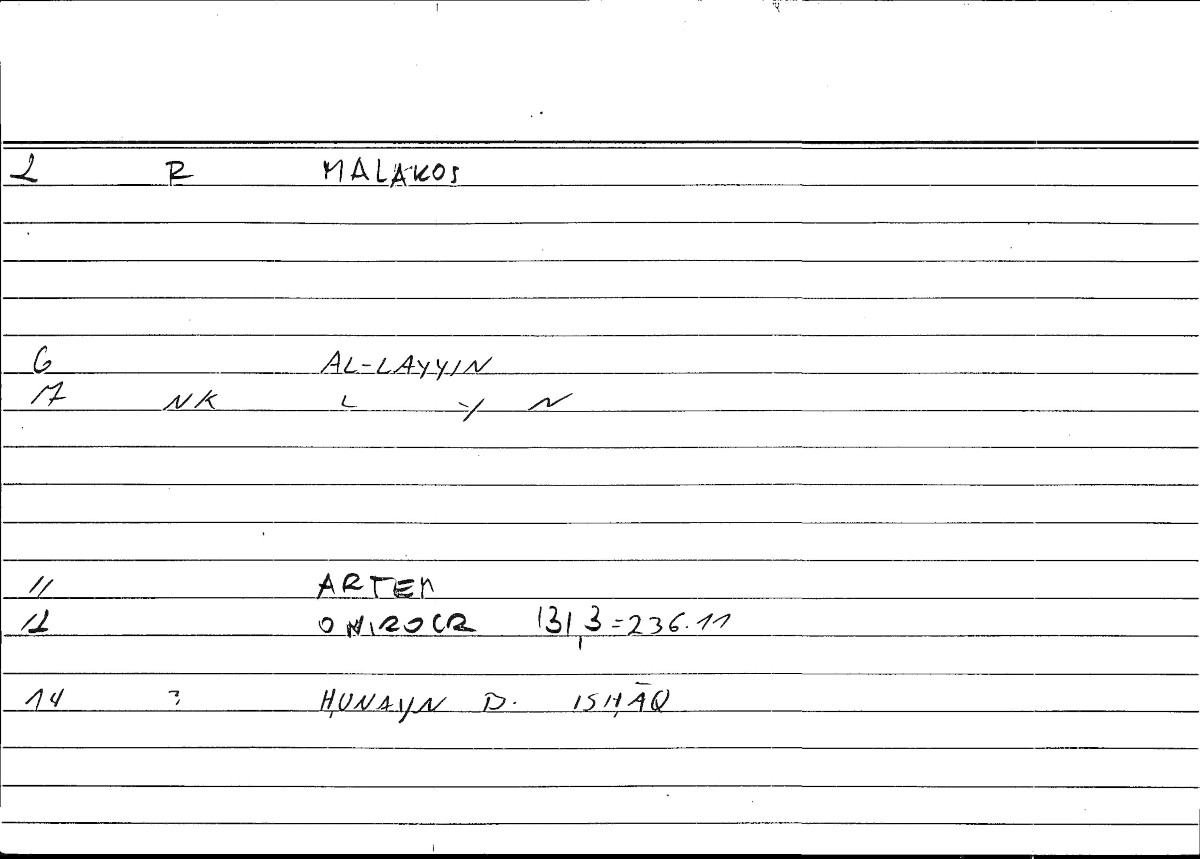 2 R MALAKOS
6 AL-LAYYIN
7 NK L Y N
11 ARTEM
12 ONIROCR 131,3=236.11
14 ? ḤUNAYN B. ISḤĀQ